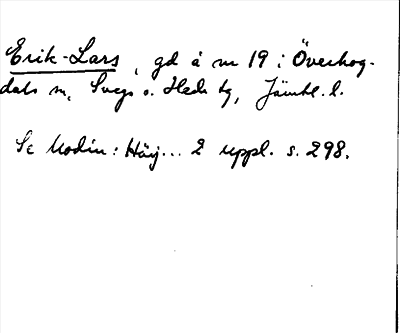 Erik-Lars, gd å nr 19 i Överhog-
dals sn, Svegs o. Heds tg, Jämtl. l.
Se Modin: Härj... 2 uppl. s. 298.